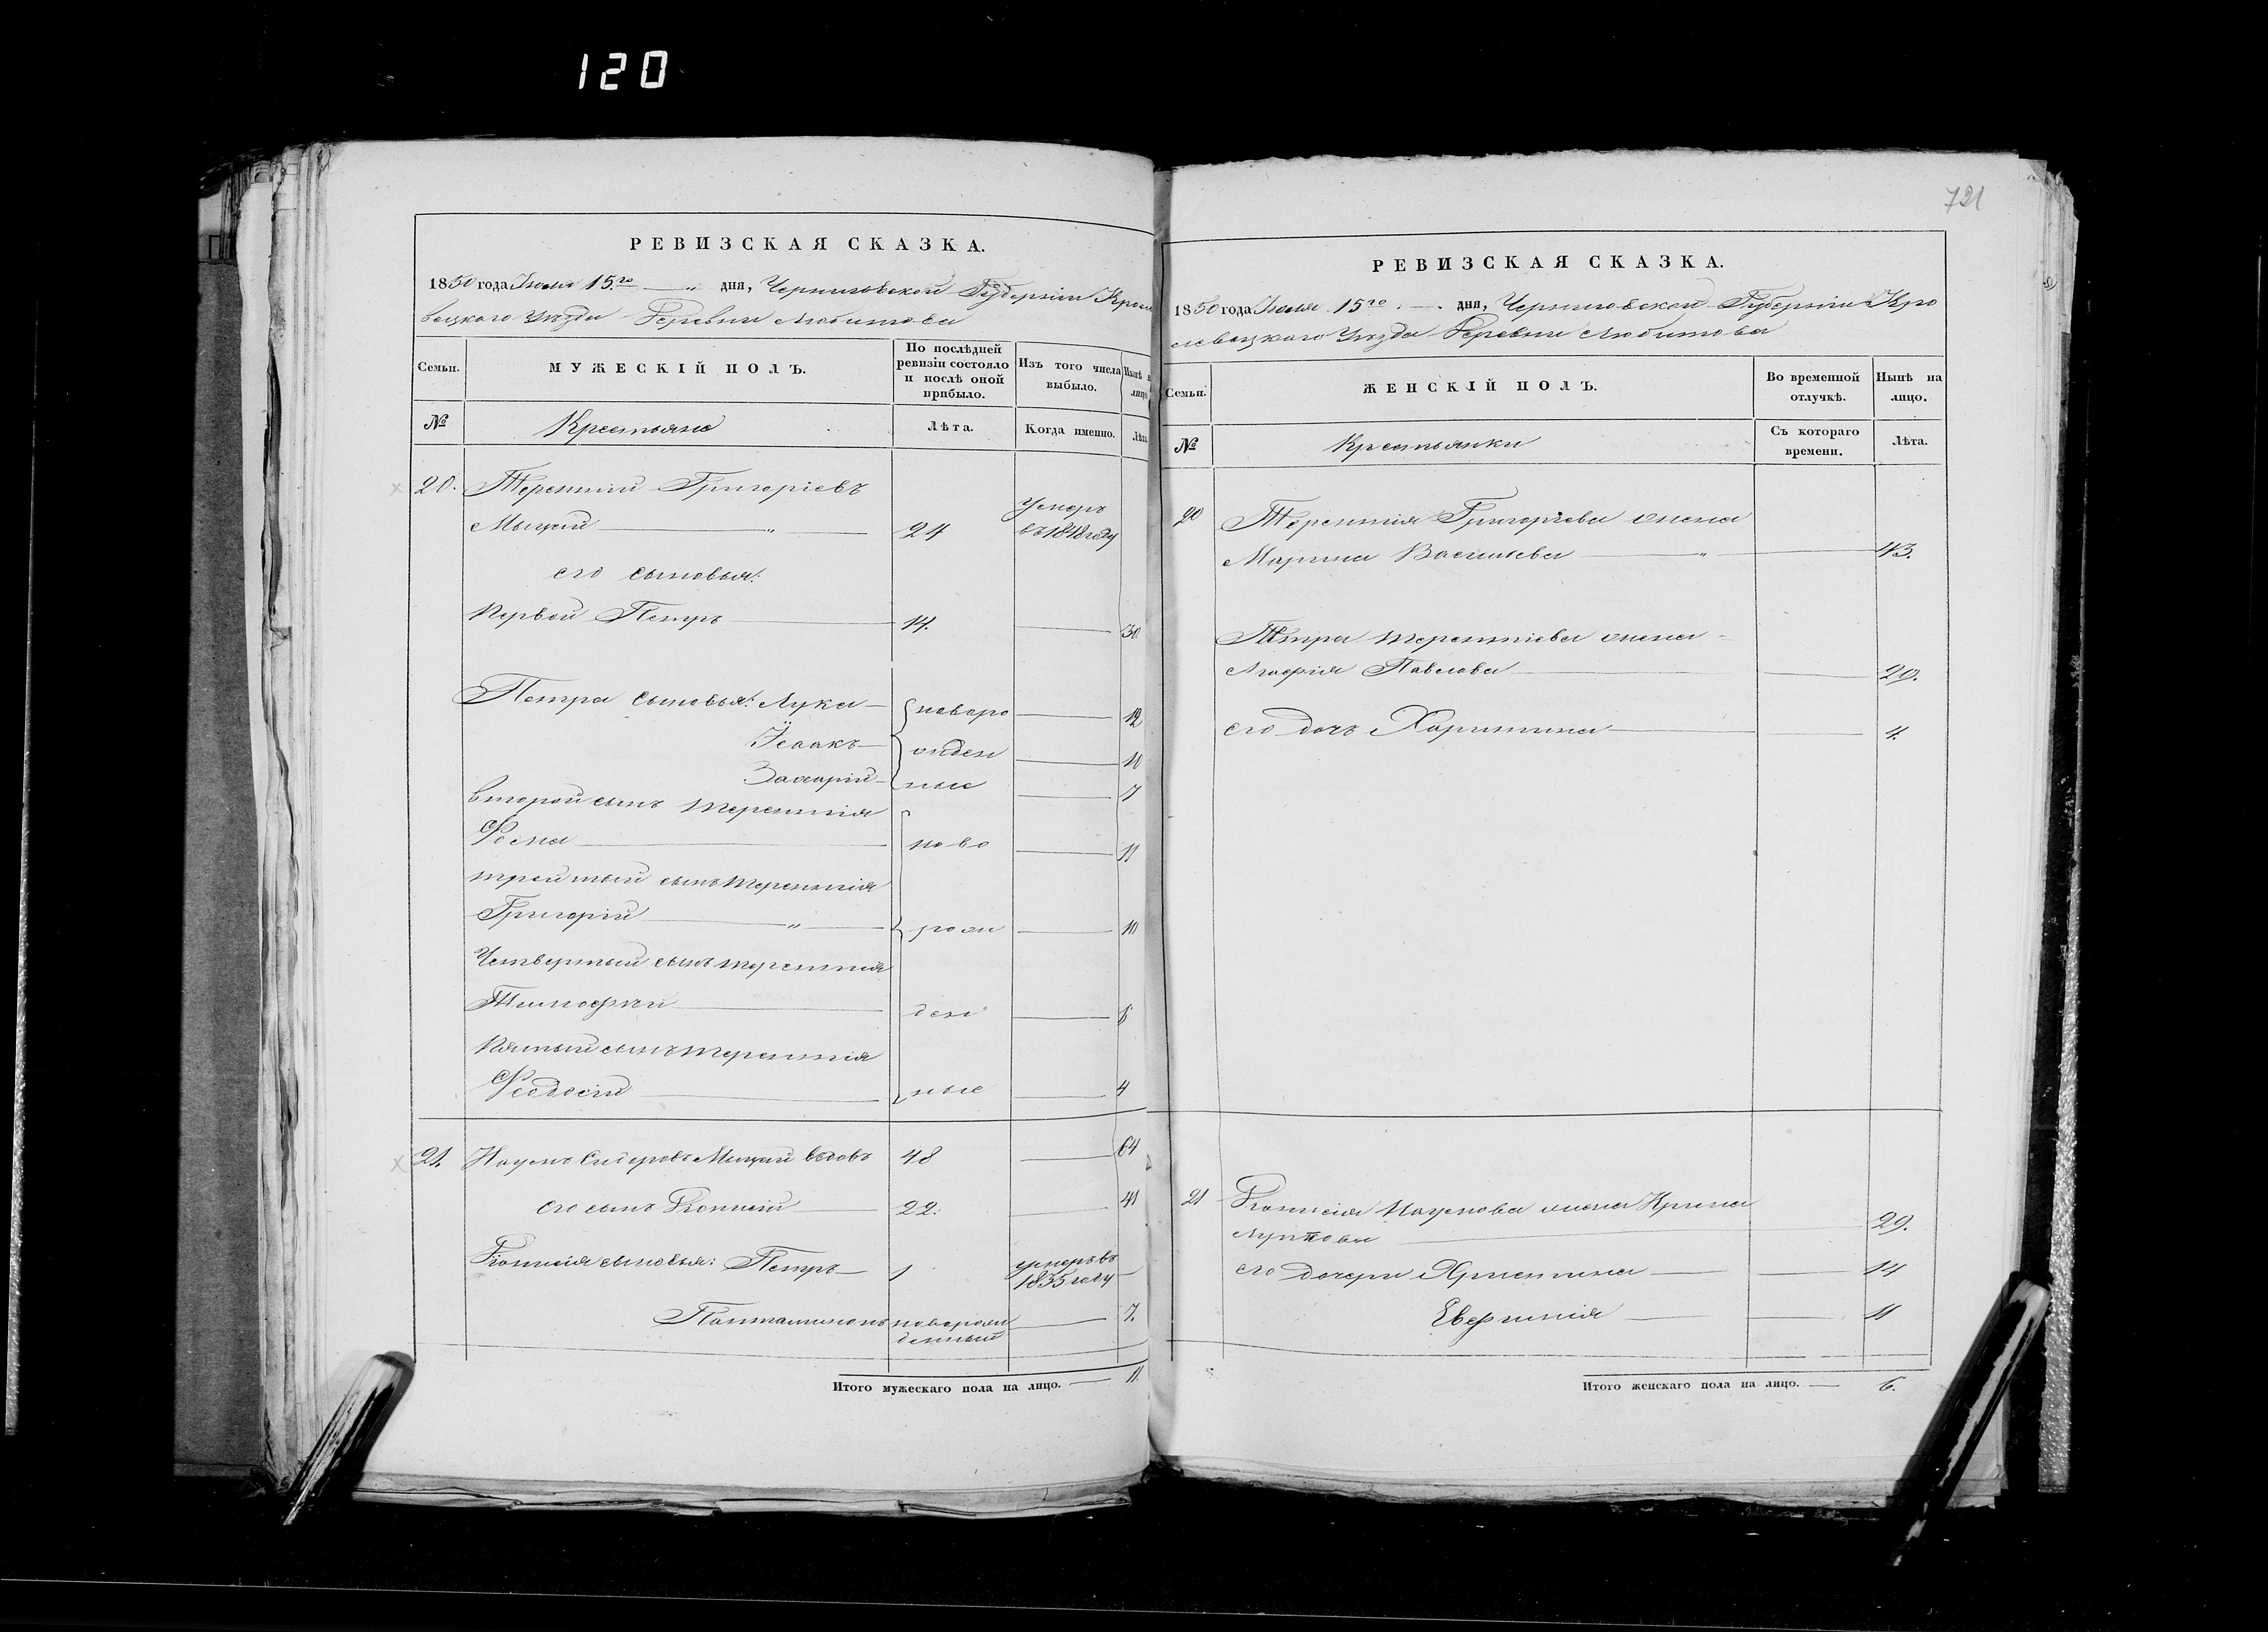 120
721
РЕВИЗСКАЯ СКАЗКА.
1850 года Іюля 15го дня, Черниговской Губерніи Кроле
вецкаго Уѣзда Деревни Любитова
Семьи.
МУЖЕСКІЙ ПОЛЪ.
По послѣдней ревизіи состояло и послѣ оной прибыло.
Изъ того числа выбыло.
Нынѣ на лицо
№
Крестьяне
Лѣта.
Когда именно.
Лѣта
20. Терентій Григоріевъ
Мыцкій — " — 24 Умеръ въ 1848 году
его сыновья:
Первой Петръ — 14. — 30.
Петра сыновья: Лука — новоро — 12
Ісаакъ — жден — 10
Захарій — ные — 7
второй сынъ Терентія
Фома — ново — 11
третий сынъ Терентія
Григорій — " — рож — 10
Четвертый сынъ Терентія
Тимофѣй — ден — 8
Пятый сынъ Терентія
Феодосій — ные — 4
21. Наумъ Сидоровъ Мыцкій вдовъ 48 — 64
его сынъ 22. — 41
сыновья: Петръ — 1 умеръ въ 1835 году —
Пантелимонъ новорожденный — 7.
Итого мужескаго пола на лицо. — 11.
РЕВИЗСКАЯ СКАЗКА.
1850 года Іюля 15го дня, Черниговской Губерніи Кро
левецкаго Уѣзда Деревни Любитова
Семьи.
ЖЕНСКІЙ ПОЛЪ.
Во временной отлучкѣ.
Нынѣ на лицо.
№
Крестьянки
Съ котораго времени.
Лѣта.
20 Терентія Григорьева жена
Марина Васильева — " — 43.
Петра Терентіева жена
Агафія Павлова — 29.
его дочь Харитина — 4.
21 Наумова жена Ирина
29.
его дочери Христина — 14
Евфимія — 11
Итого женскаго пола на лицо. — 6.